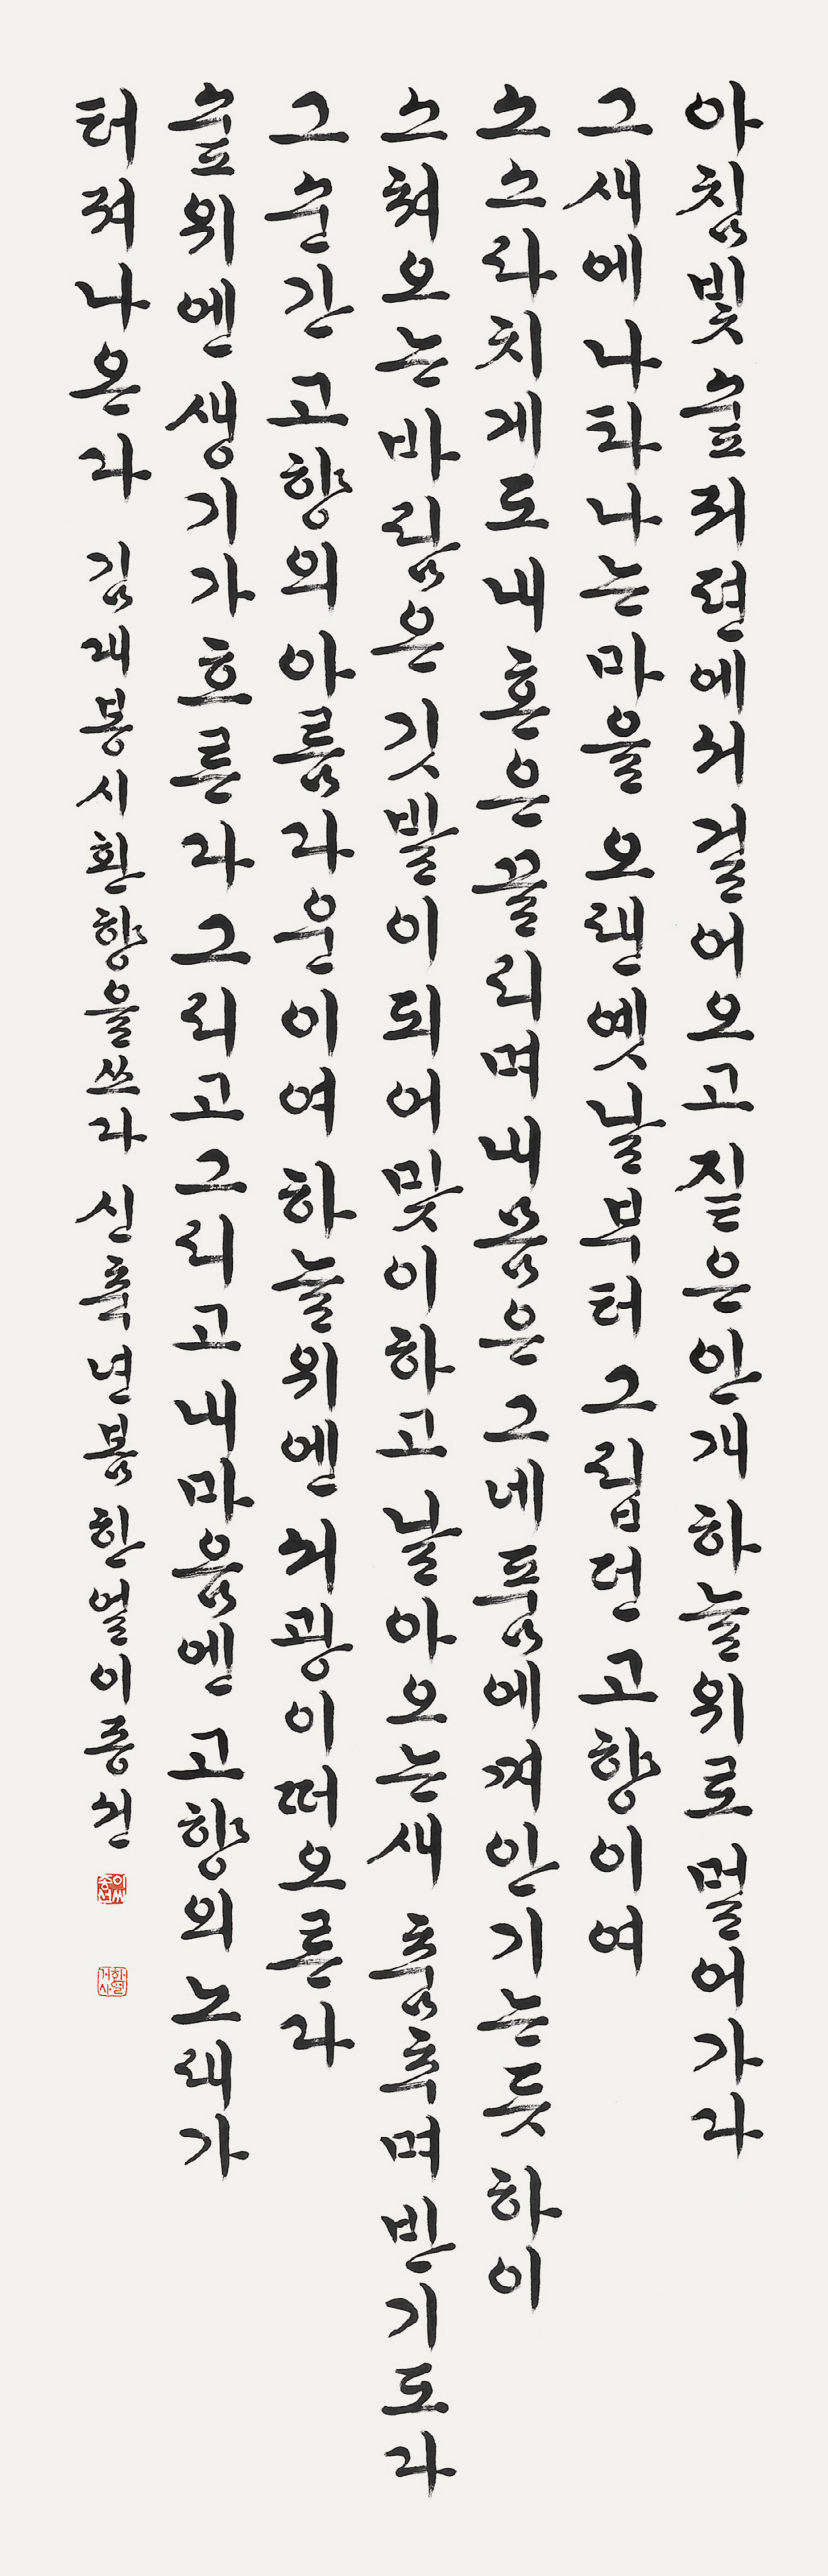 아침빛숲저편에서걸어오고짙은안개하늘위로멀어가다
그새에나타나는마을오랜옛날부터그립던고향이여
소스라치게도내혼은끌리며내몸은그네품에껴안기는듯하이
스쳐오는바람은깃발이되어맞이하고날아오는새춤추며반기도다
그순간고향의아름다운이여하늘위엔서광이떠오른다
숲위엔생기가흐른다그리고그리고내마음엔고향의노래가
터져나온다 김대봉시환향을쓰다 신축년봄한얼이종선
이씨종선
한얼거사